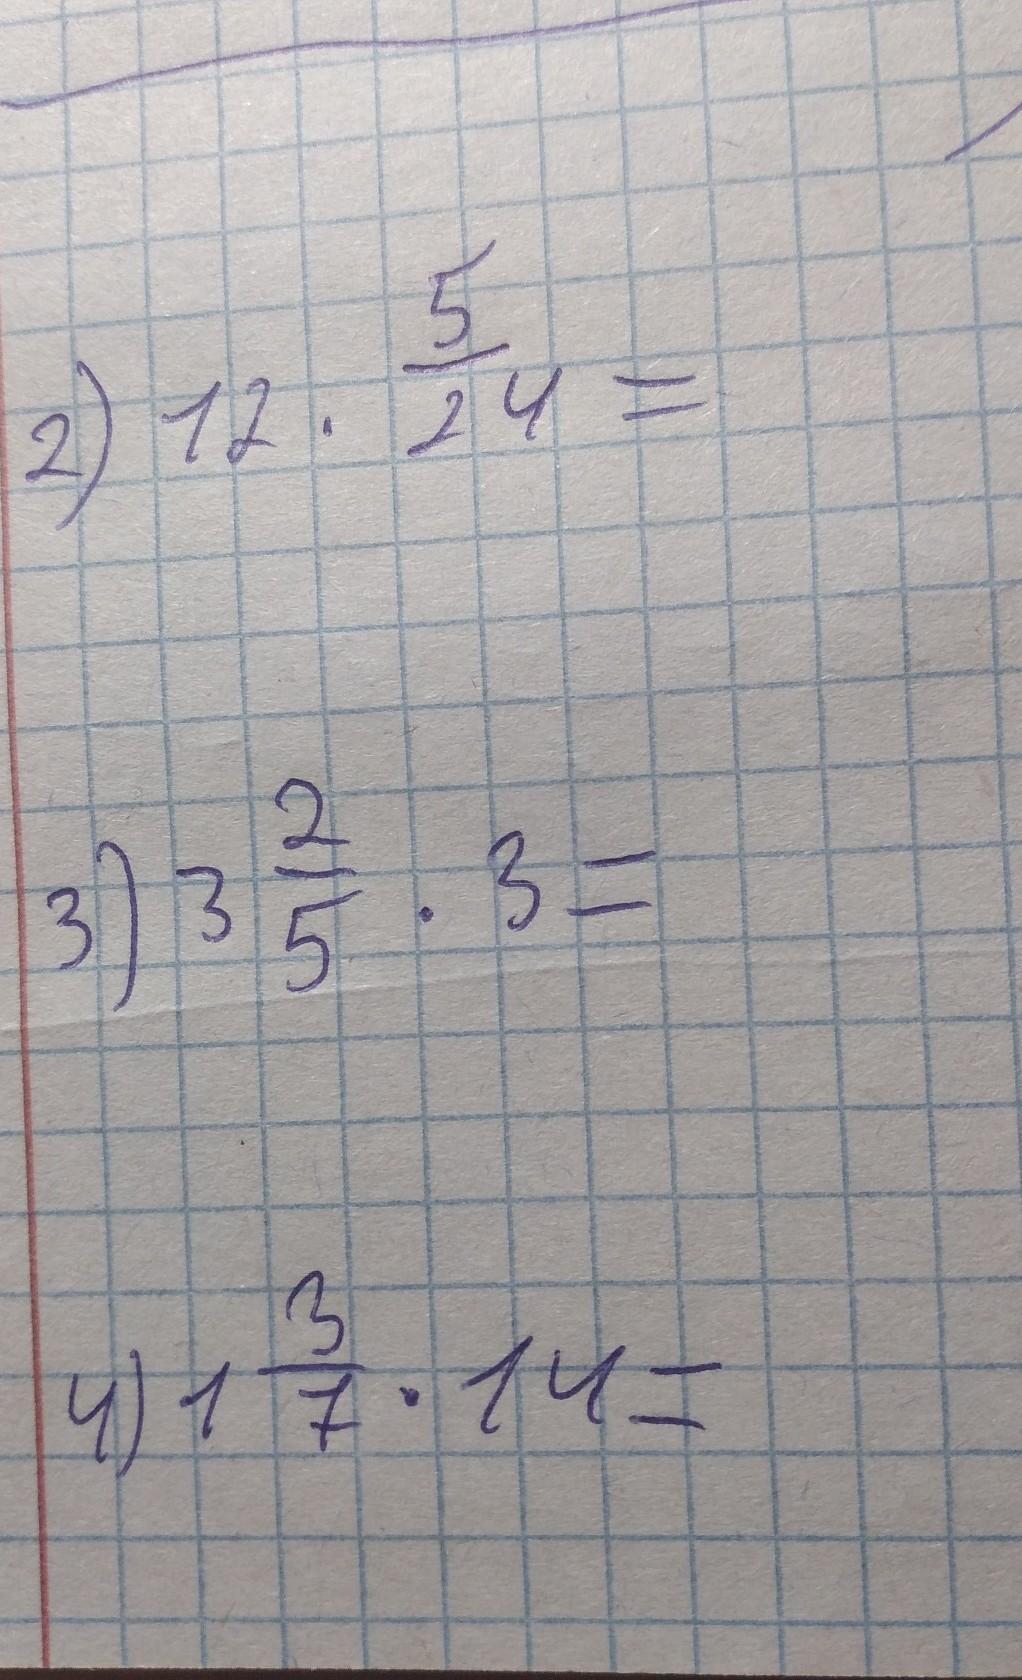 2) 12 · 5/24 =
3) 3 2/5 · 3 =
4) 1 3/7 · 14 =